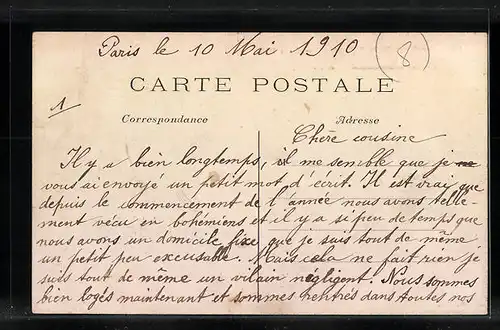 Paris le 10 Mai 1910
(8)
CARTE POSTALE
1
Correspondance
Adresse
Chère cousine
Il y a bien longtemps, il me semble que je ne
vous ai envoyé un petit mot d'écrit. Il est vrai que
depuis le commencement de l'année nous avons telle-
ment vécu en bohémiens et il y a si peu de temps que
nous avons un domicile fixe que je suis tout de même
un petit peu excusable. Mais cela ne fait rien je
suis tout de même un vilain négligent. Nous sommes
bien logés maintenant et sommes rentrés dans toutes nos